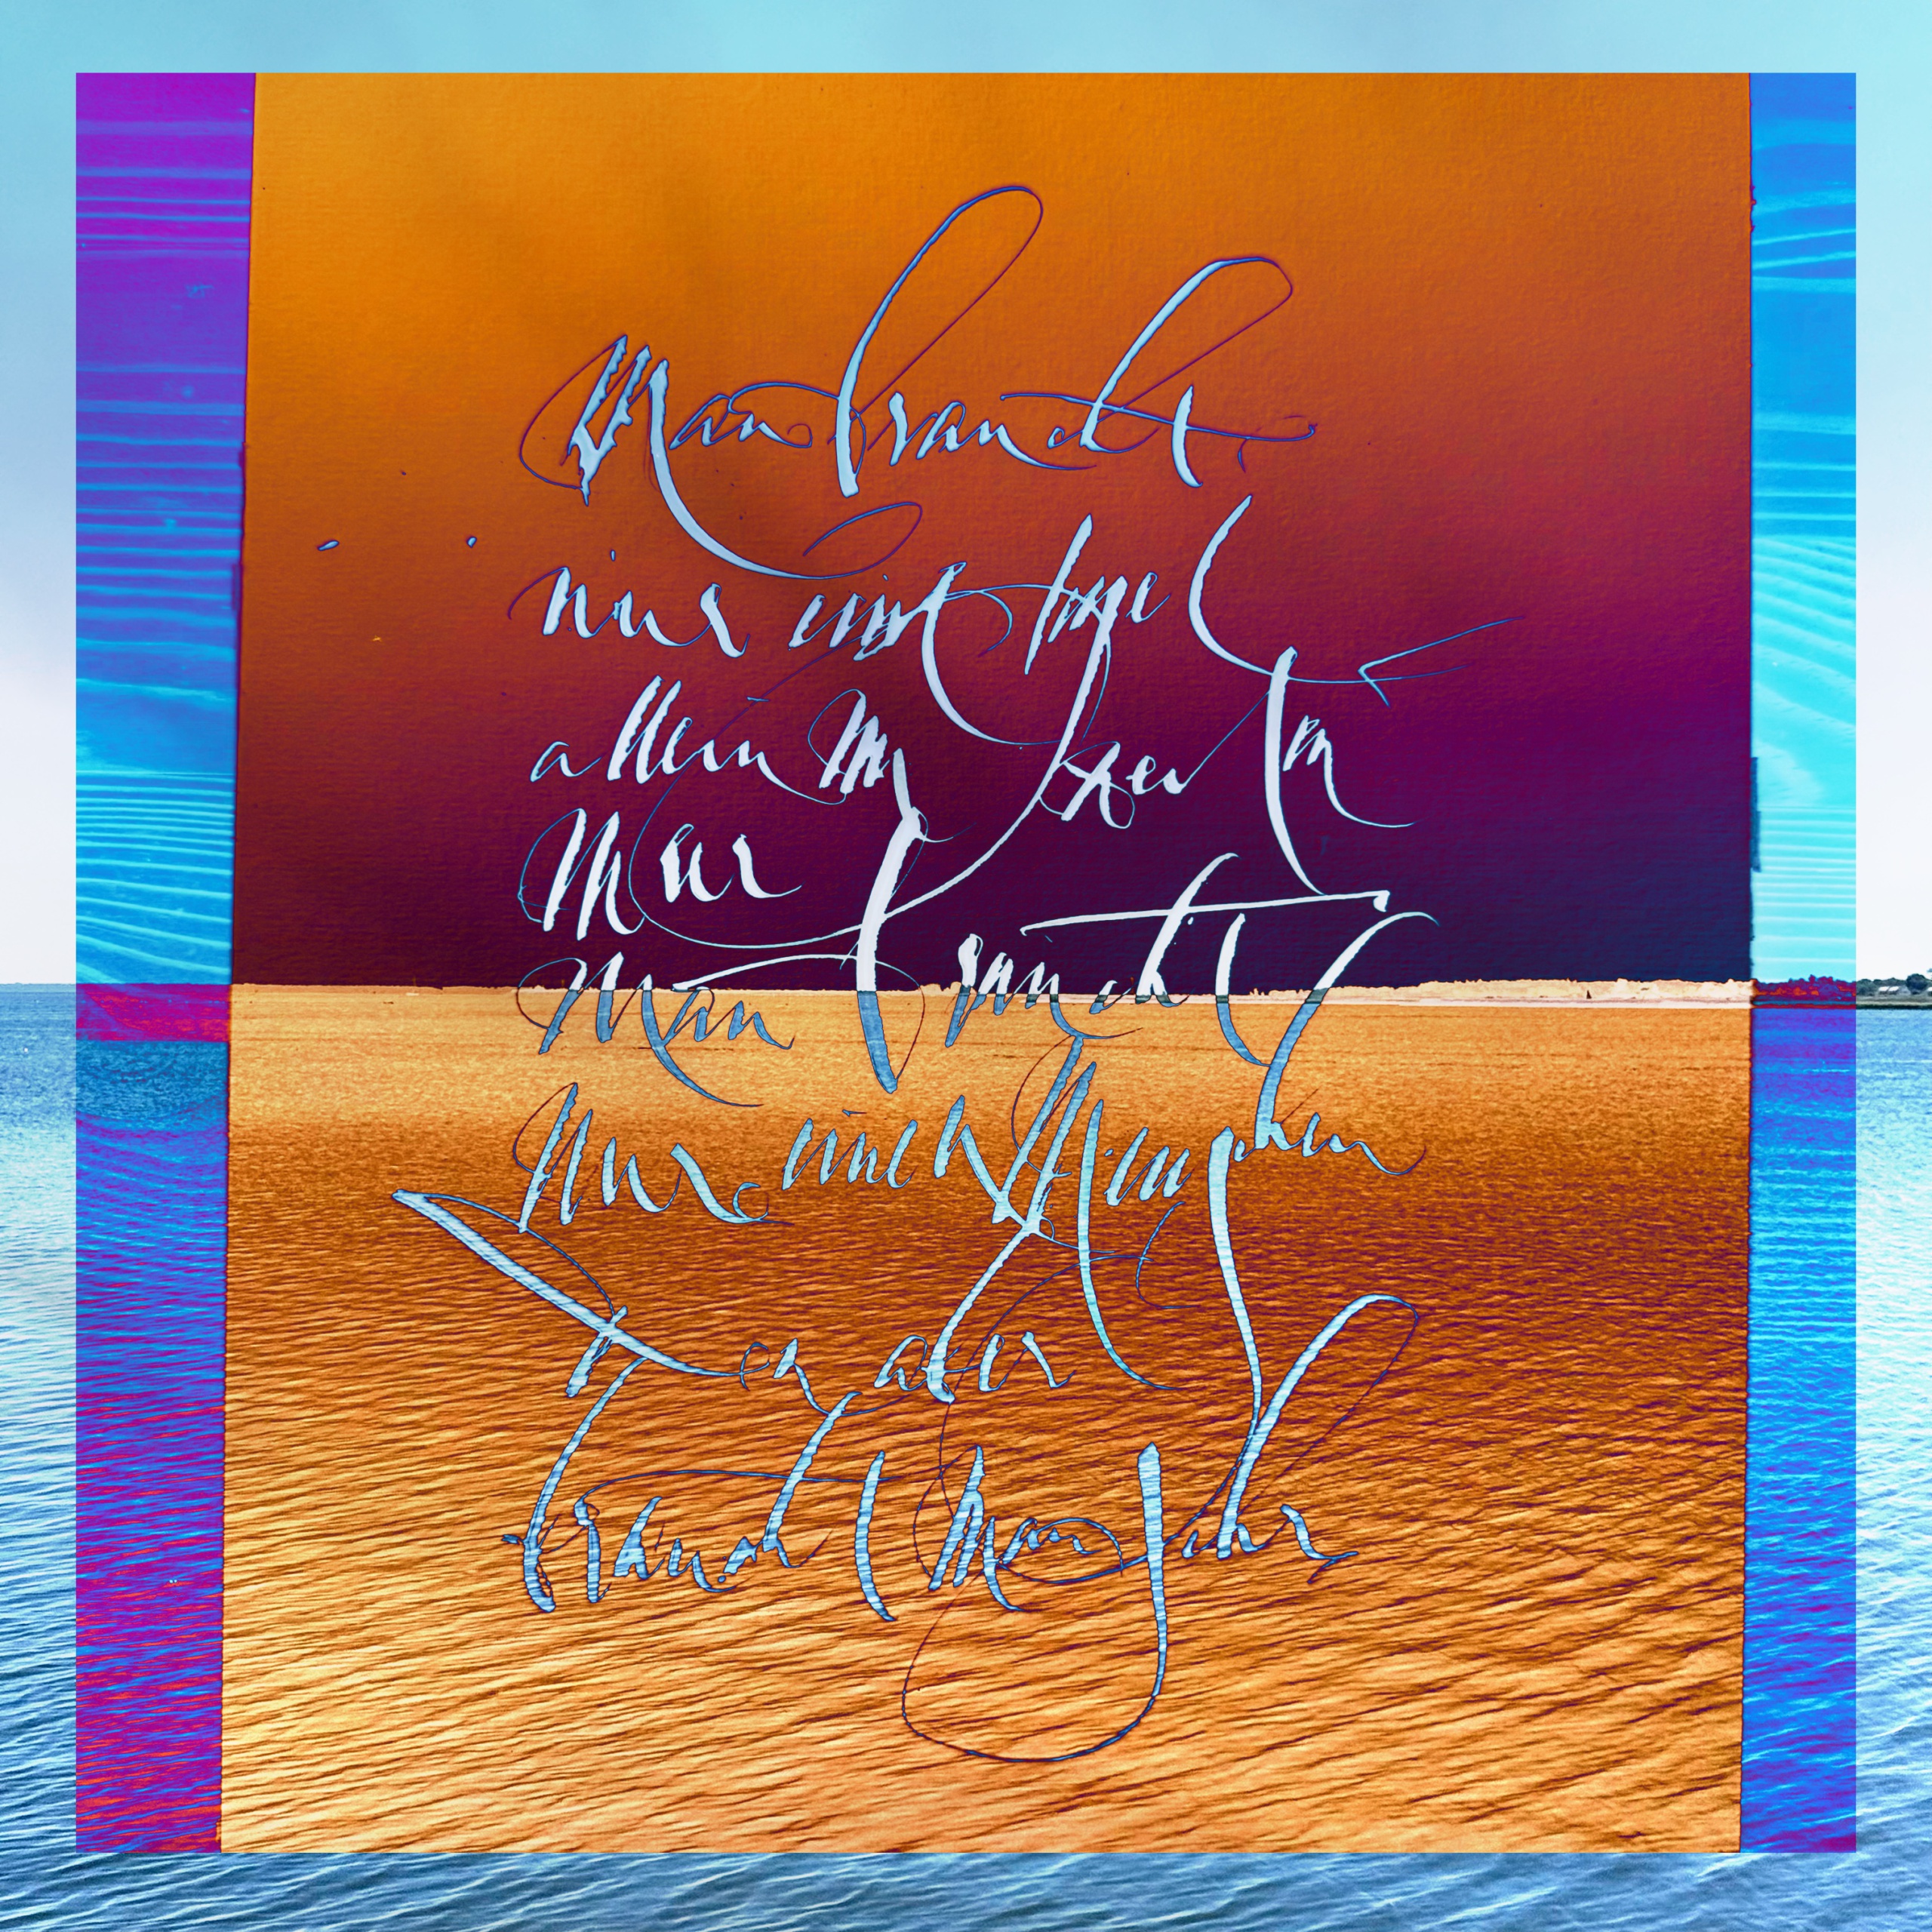 Man braucht
nur eine Insel
allein im weiten
Meer
Man braucht
nur einen Menschen
den aber
braucht man sehr